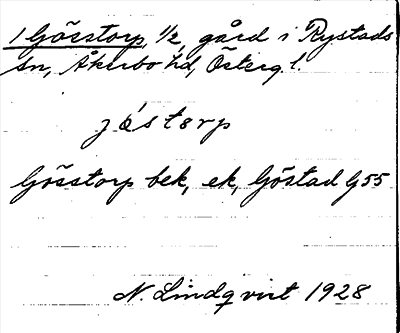 1 Gösstorp, 1/2, gård i Rystads
sn, Åkerbo hd, Österg l.
jö́stɵrp
Gösstorp bek, ek, Göstad G 55
N. Lindqvist 1928